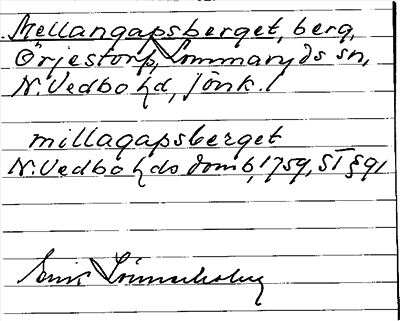 Mellangapsberget, berg,
Örjestorp, Lommaryds sn,
N. Vedbo hd, Jönk. l
millagapsberget
N. Vedbo hds domb, 1759, ST § 91